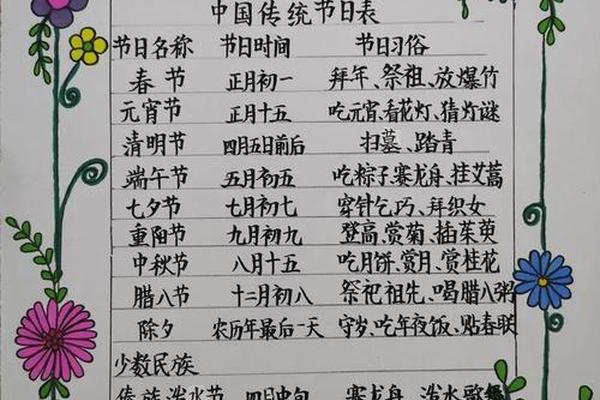 中国传统节日表
节日名称 节日时间 节日习俗
春节 正月初一 拜年、祭祖、放爆竹
元宵节 正月十五 吃元宵、看花灯、猜灯谜
清明节 四月五日前后 扫墓、踏青
端午节 五月初五 吃粽子、赛龙舟、挂艾蒿
七夕节 七月初七 穿针乞巧、拜织女
重阳节 九月初九 登高、赏菊、插茱萸
中秋节 八月十五 吃月饼、赏月、赏桂花
腊八节 十二月初八 祭祀祖先、喝腊八粥
除夕 农历年最后一天 守岁、吃年夜饭、贴春联
少数民族
傣族泼水节 四月中旬 赛龙舟、泼水